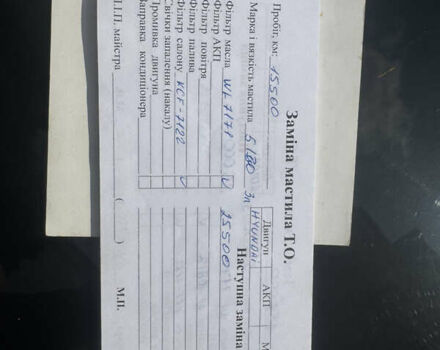 Заміна мастила Т.О.
Пробіг, км: 15500
Двигун АКП М
Марка і вязкість мастила 5/30 3л HYUNDAI
Наступна заміна
Фільтр масла WL7171 V 25500
Фільтр АКП
Фільтр повітря
Фільтр палива
Фільтр салону KCF-7122 V
Свічки запалення (накалу)
Промивка двигуна
Заправка кондиціонера
П.І.П. майстра ( ) М.П.